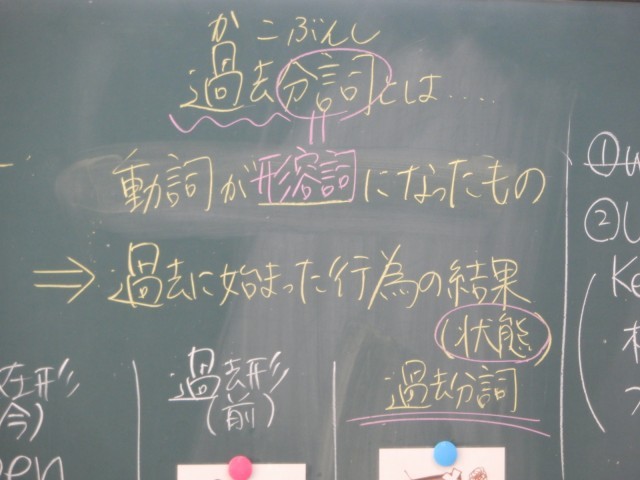 かこぶんし
過去分詞とは.....
動詞が形容詞になったもの
⇒過去に始まった行為の結果
(状態)
在形
(今)
過去形
(前)
過去分詞
①
②